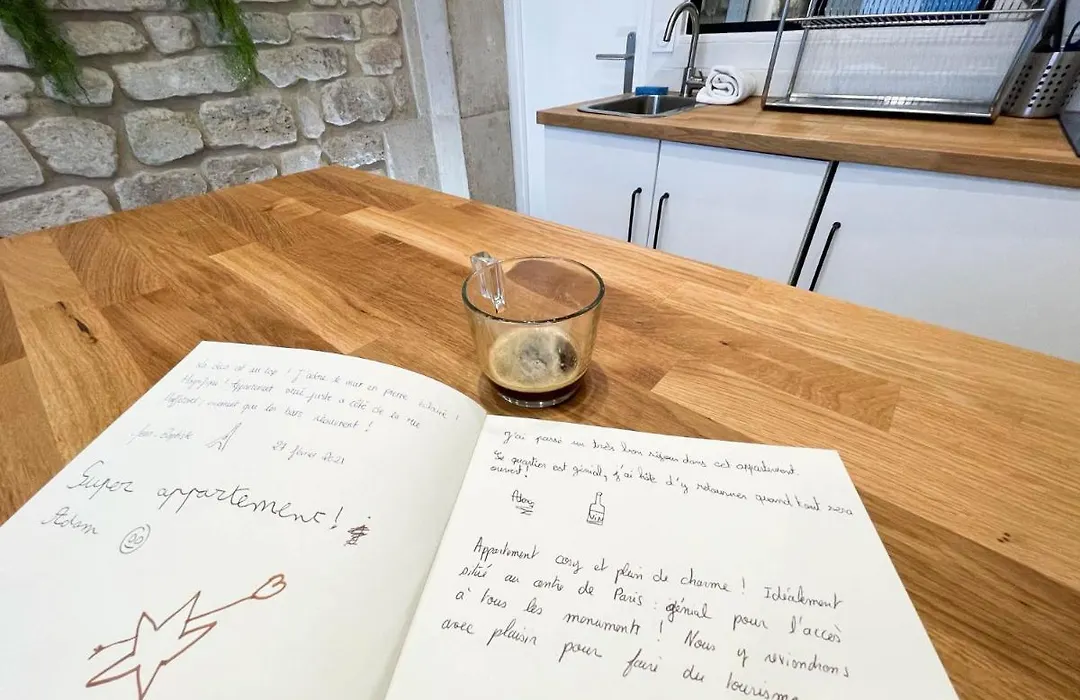 La déco est au top ! J'adore le mur en pierre
Appartement situé juste à côté de la rue
, vivement que les bars rouvrent !
Jean-Baptiste
21 février 2021
Super appartement !
Adam
J'ai passé un très bon séjour dans cet appartement.
Le quartier est génial, j'ai hâte d'y retourner quand tout sera
ouvert !
VIN
Appartement cosy et plein de charme ! Idéalement
situé au centre de Paris : génial pour l'accès
à tous les monuments ! Nous y reviendrons
avec plaisir pour faire du tourisme